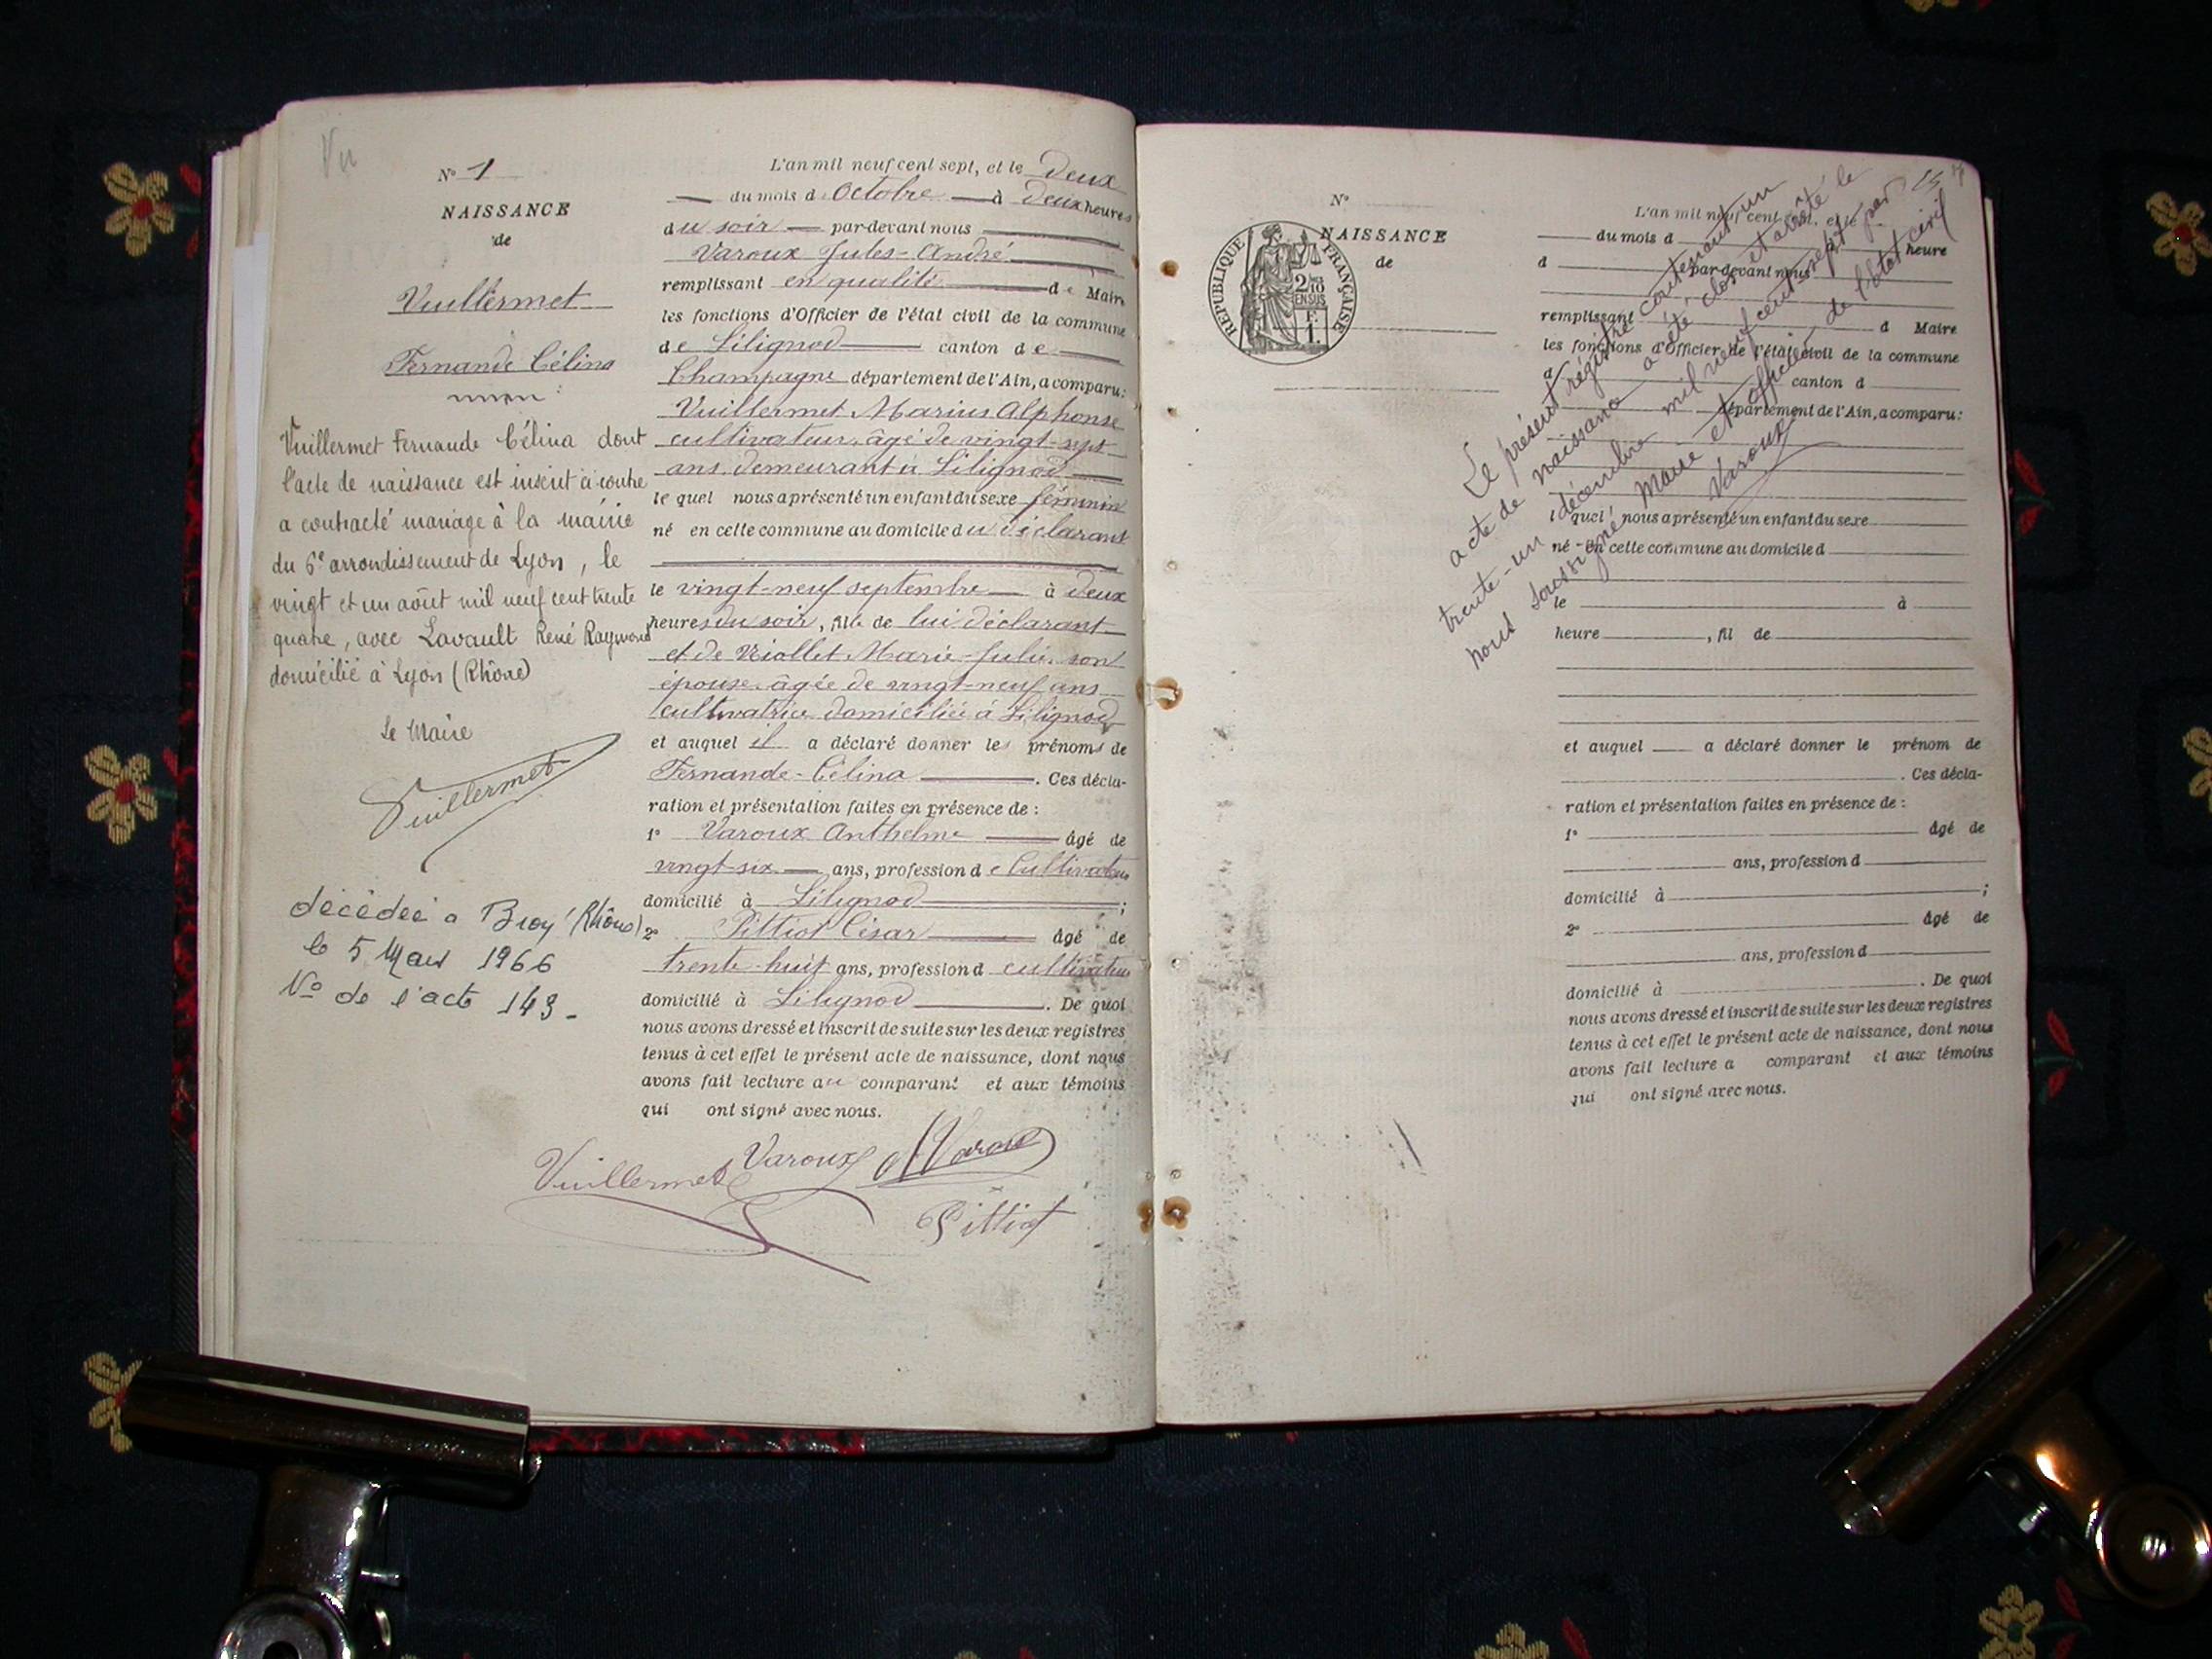 Vu
N° 1
NAISSANCE
de
Vuillermet
Fernande Célina
Vuillermet Fernande Célina dont
l'acte de naissance est inscrit ci-contre
a contracté mariage à la mairie
du 6e arrondissement de Lyon, le
vingt et un août mil neuf cent trente
quatre, avec Lavault René Raymond
domicilié à Lyon (Rhône)
Le Maire
Vuillermet
décédée à (Rhône)
le 5 Mars 1966
N° de l'acte 143 -
L'an mil neuf cent sept, et le deux
du mois d'Octobre à deux heures
du soir par-devant nous
Varoux Jules-André
remplissant en qualité de Maire
les fonctions d'Officier de l'état civil de la commune
de Lilignod canton de
Champagne département de l'Ain, a comparu:
Vuillermet Marius Alphonse
cultivateur, âgé de vingt-sept
ans, demeurant à Lilignod
le quel nous a présenté un enfant du sexe féminin
né en cette commune au domicile du déclarant
le vingt-neuf septembre à deux
heures du soir, fille de lui déclarant
et de Viollet Marie-Julie, son
épouse, âgée de vingt-neuf ans
cultivatrice domiciliée à Lilignod
et auquel il a déclaré donner les prénoms de
Fernande-Célina. Ces décla-
ration et présentation faites en présence de :
1° Varoux Anthelme âgé de
vingt-six ans, profession de Cultivateur
domicilié à Lilignod ;
2° Pittiot César âgé de
trente-huit ans, profession d cultivateur
domicilié à Lilignod. De quoi
nous avons dressé et inscrit de suite sur les deux registres
tenus à cet effet le présent acte de naissance, dont nous
avons fait lecture au comparant et aux témoins
qui ont signé avec nous.
Vuillermet Varoux A Varoux
Pittiot
N°
NAISSANCE
de
RÉPUBLIQUE FRANÇAISE
2/10
EN SUS
F.
1.
L'an mil neuf cent sept, et le
du mois d
heure
d par-devant nous
remplissant d Maire
les fonctions d'Officier de l'état civil de la commune
d canton d
département de l'Ain, a comparu:
l quel nous a présenté un enfant du sexe
né en cette commune au domicile d
le à
heure , fil de
et auquel a déclaré donner le prénom de
. Ces décla-
ration et présentation faites en présence de :
1° âgé de
ans, profession d
domicilié à ;
2° âgé de
ans, profession d
domicilié à . De quoi
nous avons dressé et inscrit de suite sur les deux registres
tenus à cet effet le présent acte de naissance, dont nous
avons fait lecture a comparant et aux témoins
qui ont signé avec nous.
Le présent régistre contenant un
acte de naissance a été clos et arrêté le
trente-un décembre mil neuf cent sept par
nous soussigné Maire et officier de l'état civil
Varoux